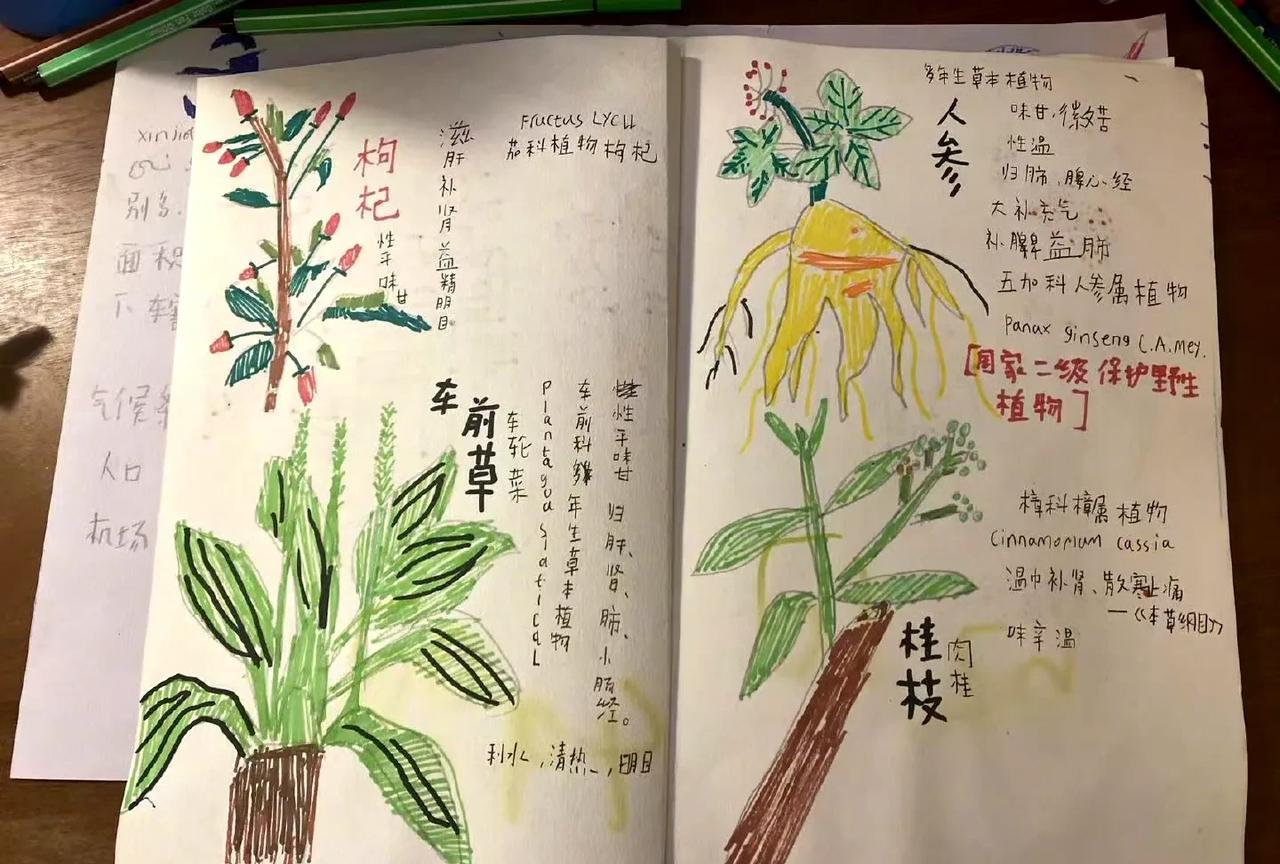 Fructus LYCLL
茄科植物枸杞
枸杞
性平味甘
滋肝补肾益精明目
车前草
车轮菜
性平味甘
归肝、肾、肺、小肠经。
利水,清热,明目
多年生草本植物
人参
味甘,微苦
性温
归肺、脾心经
大补元气
补脾益肺
五加科人参属植物
Panax ginseng C.A.Mey.
[国家二级保护野生
植物]
樟科樟属植物
Cinnamomum cassia
温中补肾、散寒止痛
—《本草纲目》
味辛温
桂枝
肉桂
xinji
别名.
面积
下辖
气候条
人口
机场